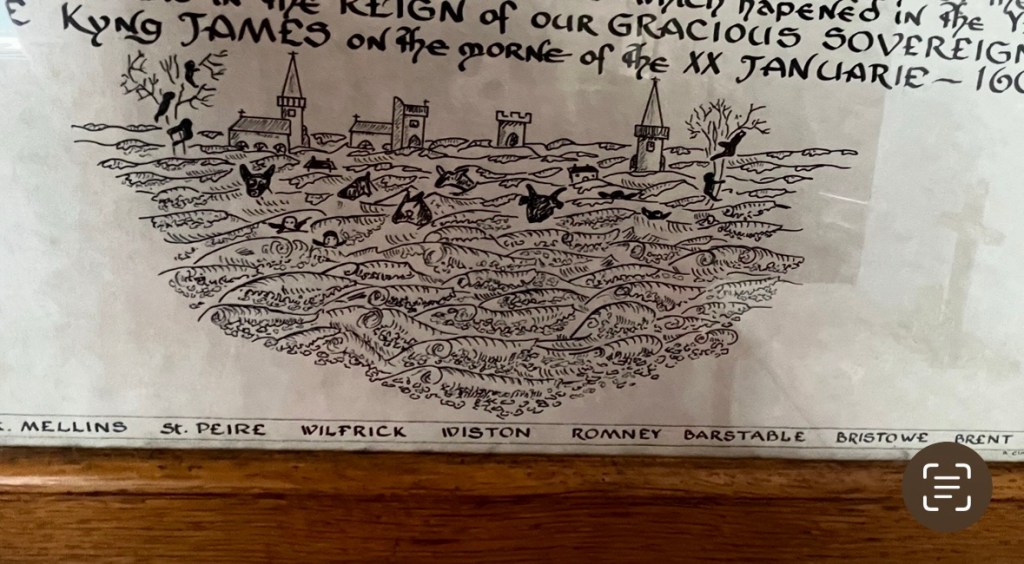 IN the REIGN of OUR GRACIOUS SOVEREIGN
which hapened IN the
Kyng JAMES ON the MORNE of the XX JANUARIE ~ 160
MELLINS St. PEIRE WILFRICK WISTON ROMNEY BARSTABLE BRISTOWE BRENT